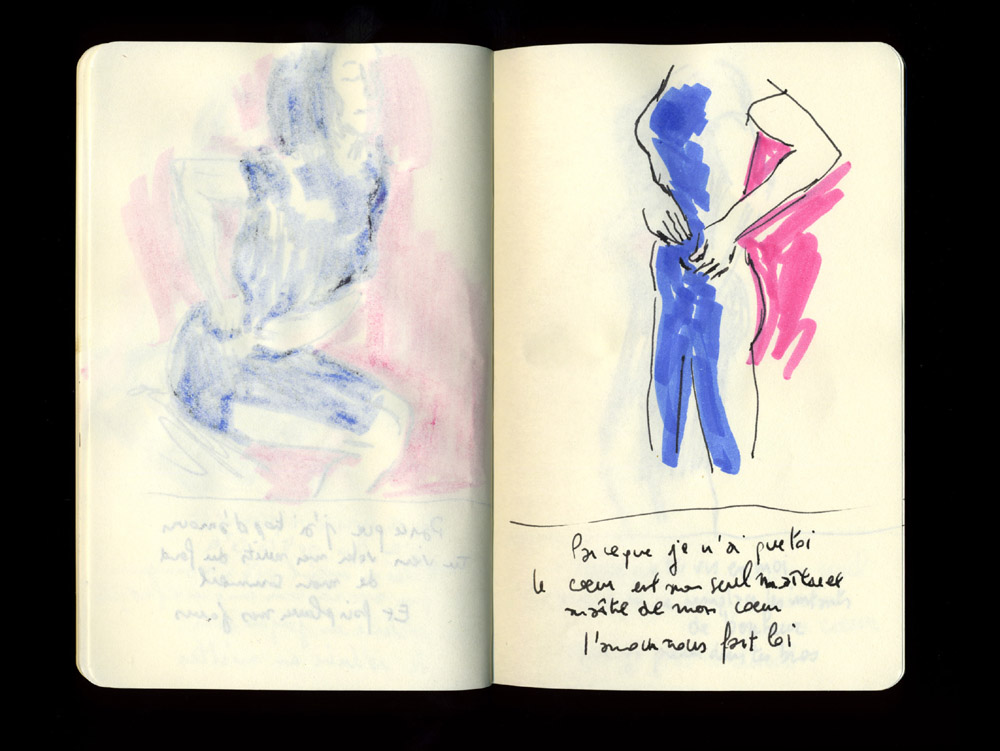 Parce que j'ai trop d'amour
Tu viens voler mes nuits du fond
de mon sommeil
Et fais pleurer mes jours
Parce que je n'ai que toi
le cœur est mon seul maître et
maître de mon cœur
l'amour nous fait loi